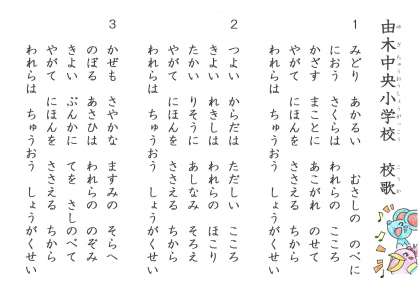 由木中央小学校　校歌
ゆぎちゅうおうしょうがっこう　こうか
1
みどり　あかるい　むさしの　のべに
におう　さくらは　われらの　こころ
かざす　まことに　あこがれ　のせて
やがて　にほんを　ささえる　ちから
われらは　ちゅうおう　しょうがくせい
2
つよい　からだは　ただしい　こころ
きよい　れきしは　われらの　ほこり
たかい　りそうに　あしなみ　そろえ
やがて　にほんを　ささえる　ちから
われらは　ちゅうおう　しょうがくせい
3
かぜも　さやかな　ますみの　そらへ
のぼる　あさひは　われらの　のぞみ
きよい　ぶんかに　てを　さしのべて
やがて　にほんを　ささえる　ちから
われらは　ちゅうおう　しょうがくせい